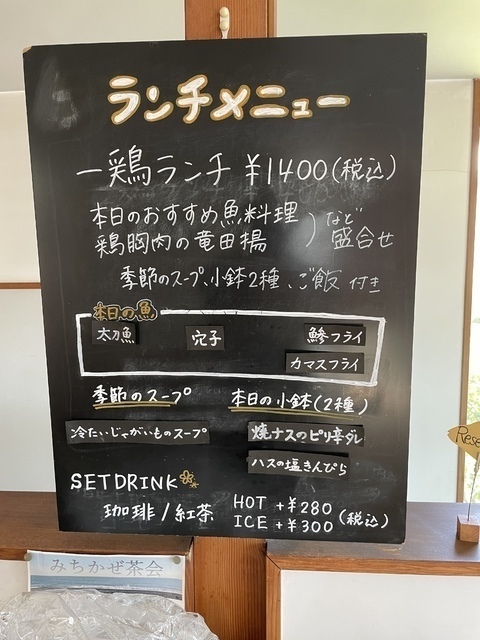 ランチメニュー
一鶏ランチ ¥1400(税込)
本日のおすすめ魚料理
鶏胸肉の竜田揚
など
盛合せ
季節のスープ、小鉢2種、ご飯 付き
本日の魚
太刀魚 穴子 鯵フライ
カマスフライ
季節のスープ 本日の小鉢(2種)
冷たいじゃがいものスープ 焼ナスのピリ辛ダレ
ハスの塩きんぴら
SETDRINK
珈琲/紅茶 HOT +¥280
ICE +¥300 (税込)
Rese
みちかぜ茶会